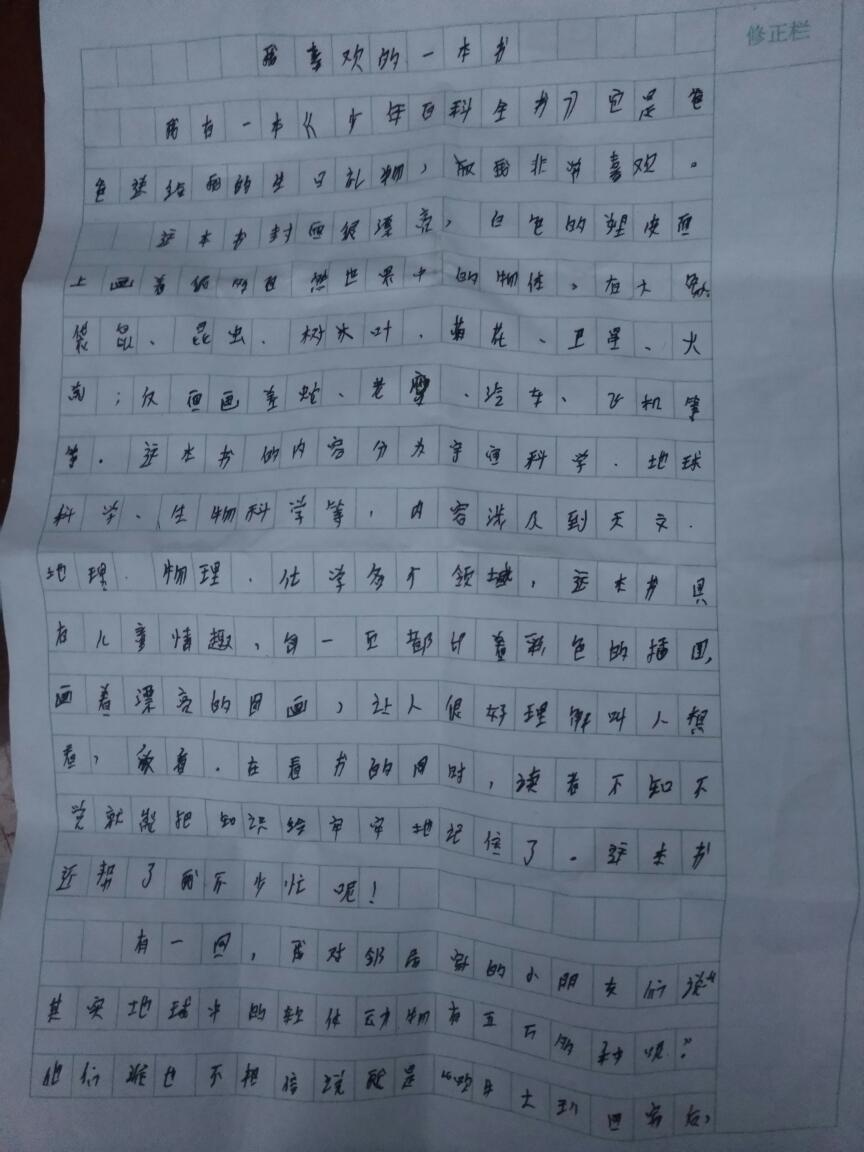 修正栏
我喜欢的一本书
我有一本《少年百科全书》它是爸
爸送给我的生日礼物，我非常喜欢。
这本书封面很漂亮，白色的硬皮面
上画着的自然世界中的物体，有大象
昆虫、树木叶、菊花、卫星、火
箭；反面画着蛇、老鹰、汽车、飞机等
等。这本书的内容分为宇宙科学、地球
科学、生物科学等，内容涉及到天文、
地理、物理、化学多个领域，这本书具
有儿童情趣，每一页都印着彩色的插图，
画着漂亮的图画，让人很好理解叫人想
看，爱看。在看书的同时，读者不知不
觉就能把知识给牢牢地记住了。这本书
还帮了我不少忙呢！
有一回，我对邻居家的小朋友们说“
其实地球上的软体动物有五万多种呢？”
他们谁也不相信说就是回家后，